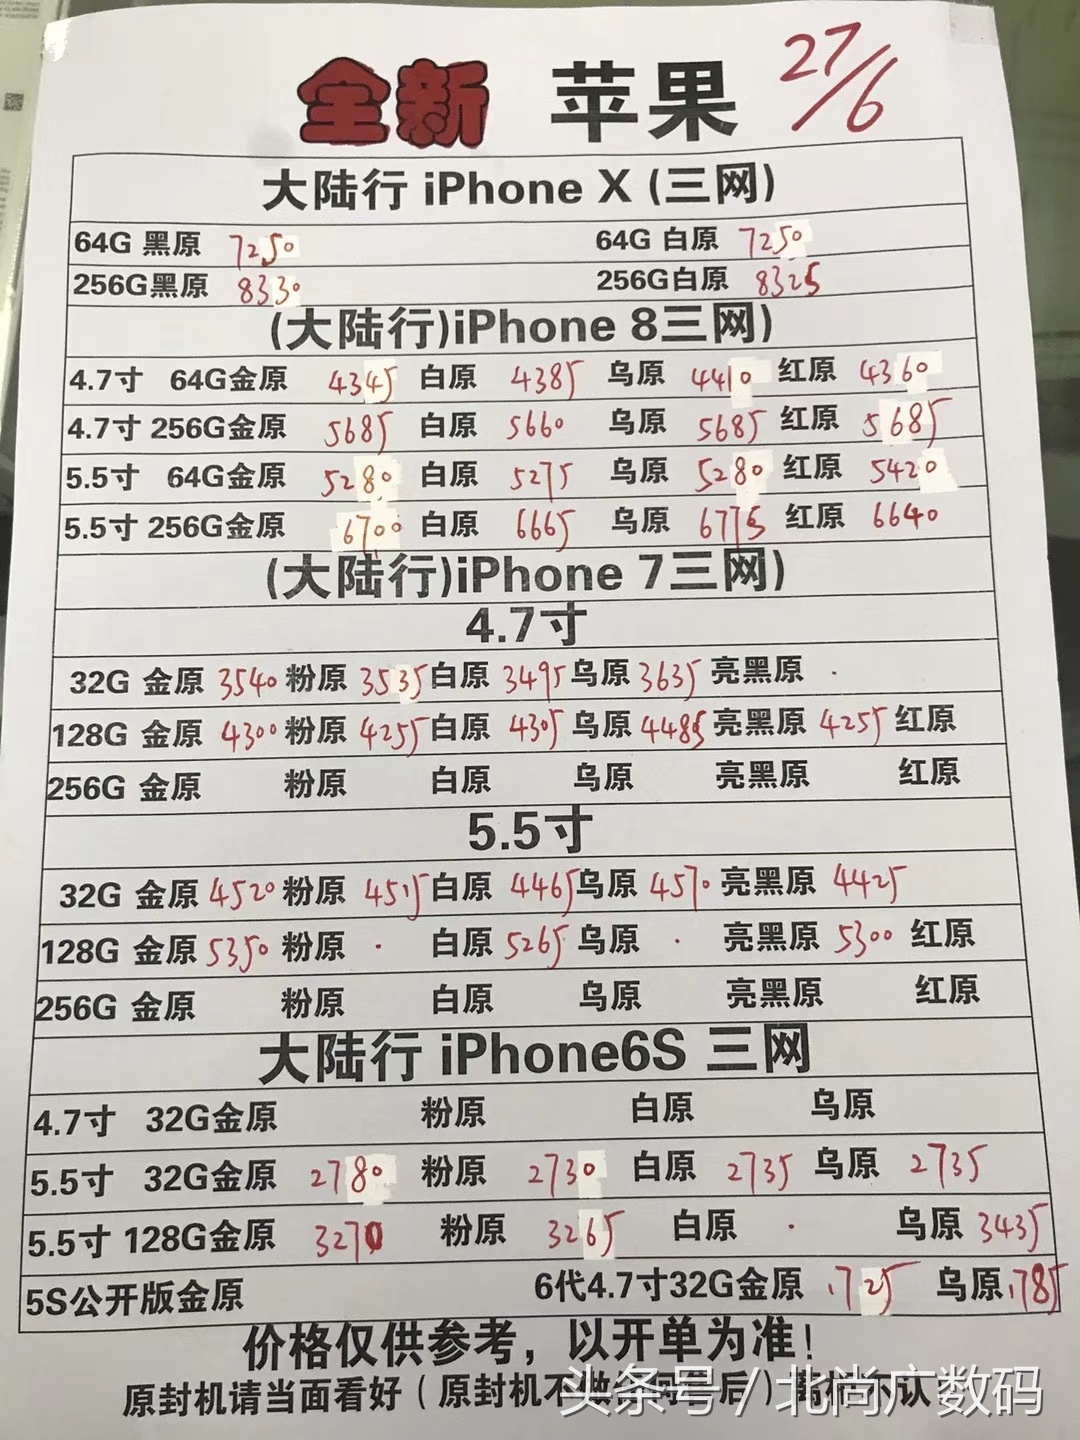 全新 苹果 27/6
大陆行 iPhone X (三网)
64G 黑原 7250 64G 白原 7250
256G黑原 8330 256G白原 8325
(大陆行)iPhone 8三网)
4.7寸 64G金原 4345 白原 4385 乌原 4410 红原 4360
4.7寸 256G金原 5685 白原 5660 乌原 5685 红原 5685
5.5寸 64G金原 5280 白原 5275 乌原 5280 红原 5420
5.5寸 256G金原 6700 白原 6665 乌原 6775 红原 6640
(大陆行)iPhone 7三网)
4.7寸
32G 金原 3540 粉原 3535 白原 3495 乌原 3635 亮黑原 ·
128G 金原 4300 粉原 4255 白原 4305 乌原 4485 亮黑原 4255 红原
256G 金原 粉原 白原 乌原 亮黑原 红原
5.5寸
32G 金原 4520 粉原 4515 白原 4465 乌原 4570 亮黑原 4425
128G 金原 5350 粉原 · 白原 5265 乌原 · 亮黑原 5300 红原
256G 金原 粉原 白原 乌原 亮黑原 红原
大陆行 iPhone6S 三网
4.7寸 32G金原 粉原 白原 乌原
5.5寸 32G金原 2780 粉原 2730 白原 2735 乌原 2735
5.5寸 128G金原 3270 粉原 3265 白原 · 乌原 3435
5S公开版金原 6代4.7寸32G金原 1725 乌原 1785
价格仅供参考，以开单为准！
原封机请当面看好（原封机不
头条号 / 北尚广数码